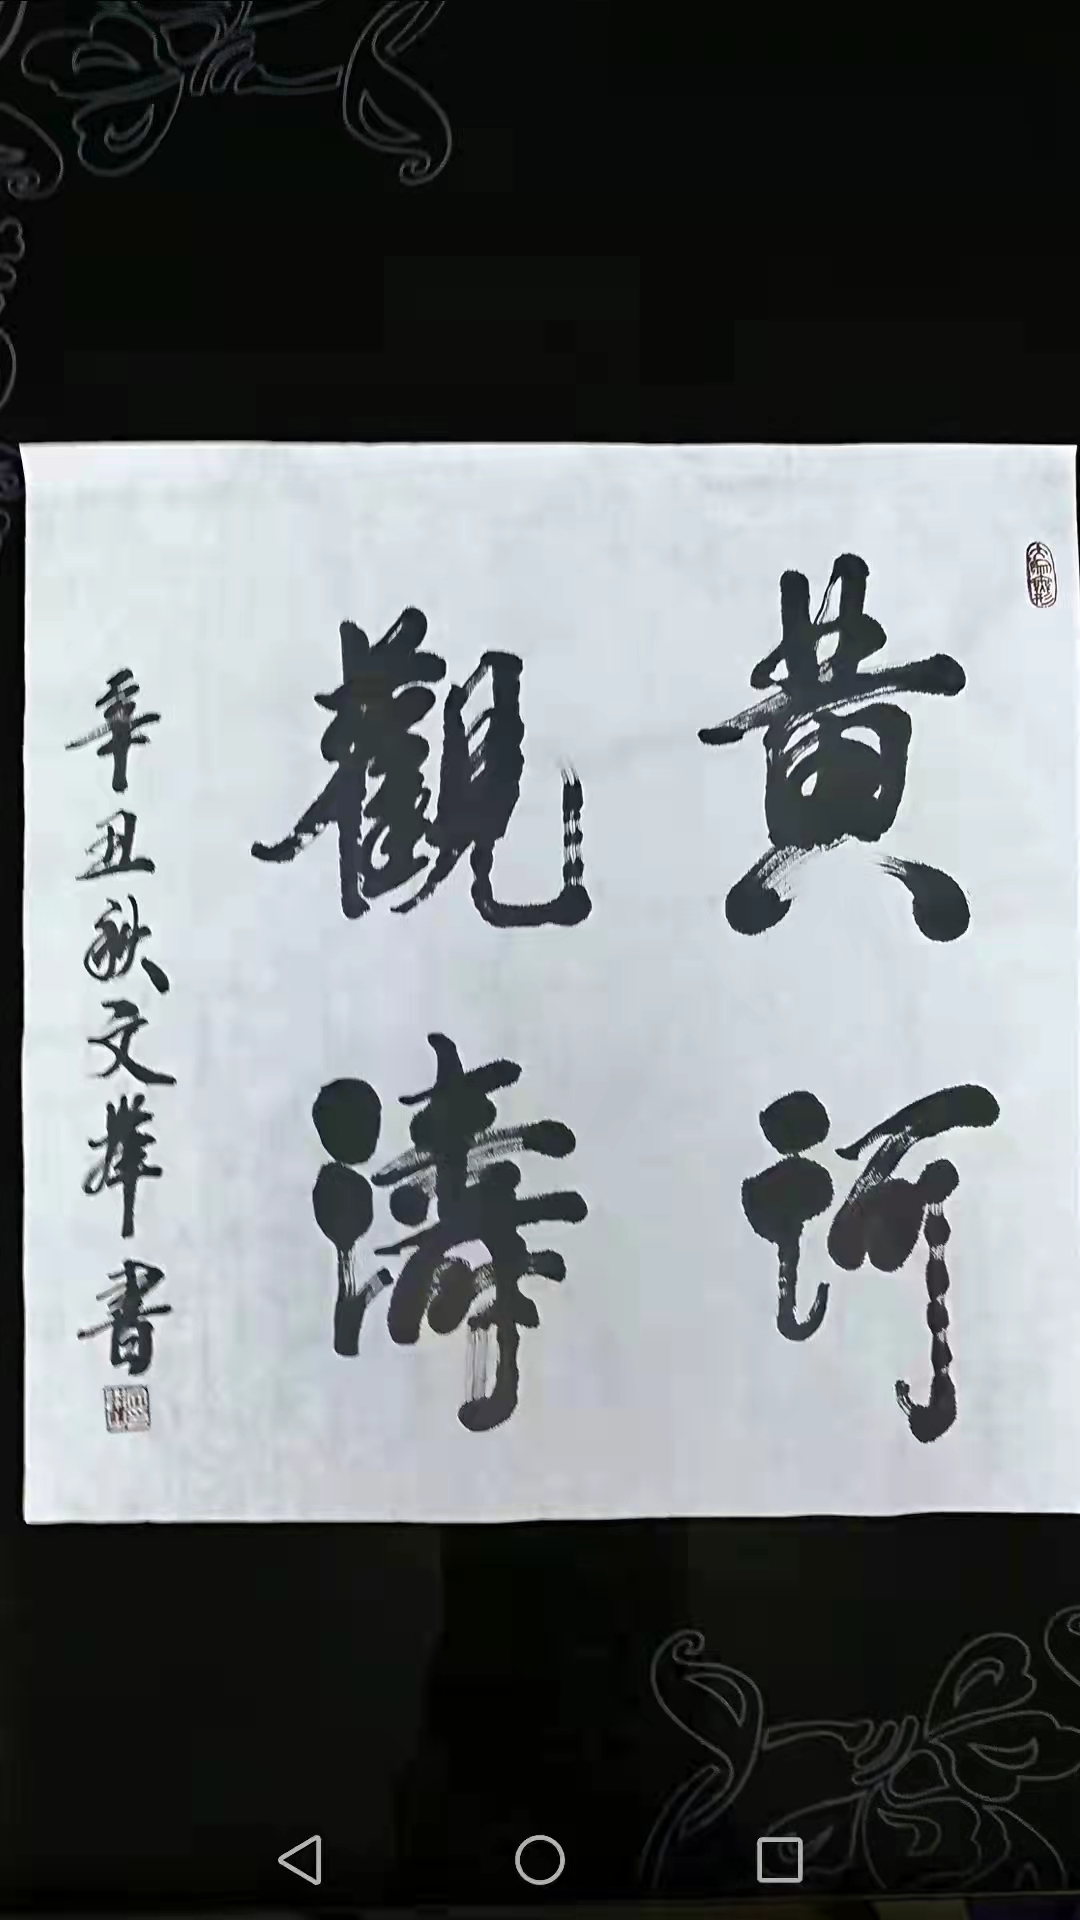 黄河
觀濤
辛丑秋文舉書